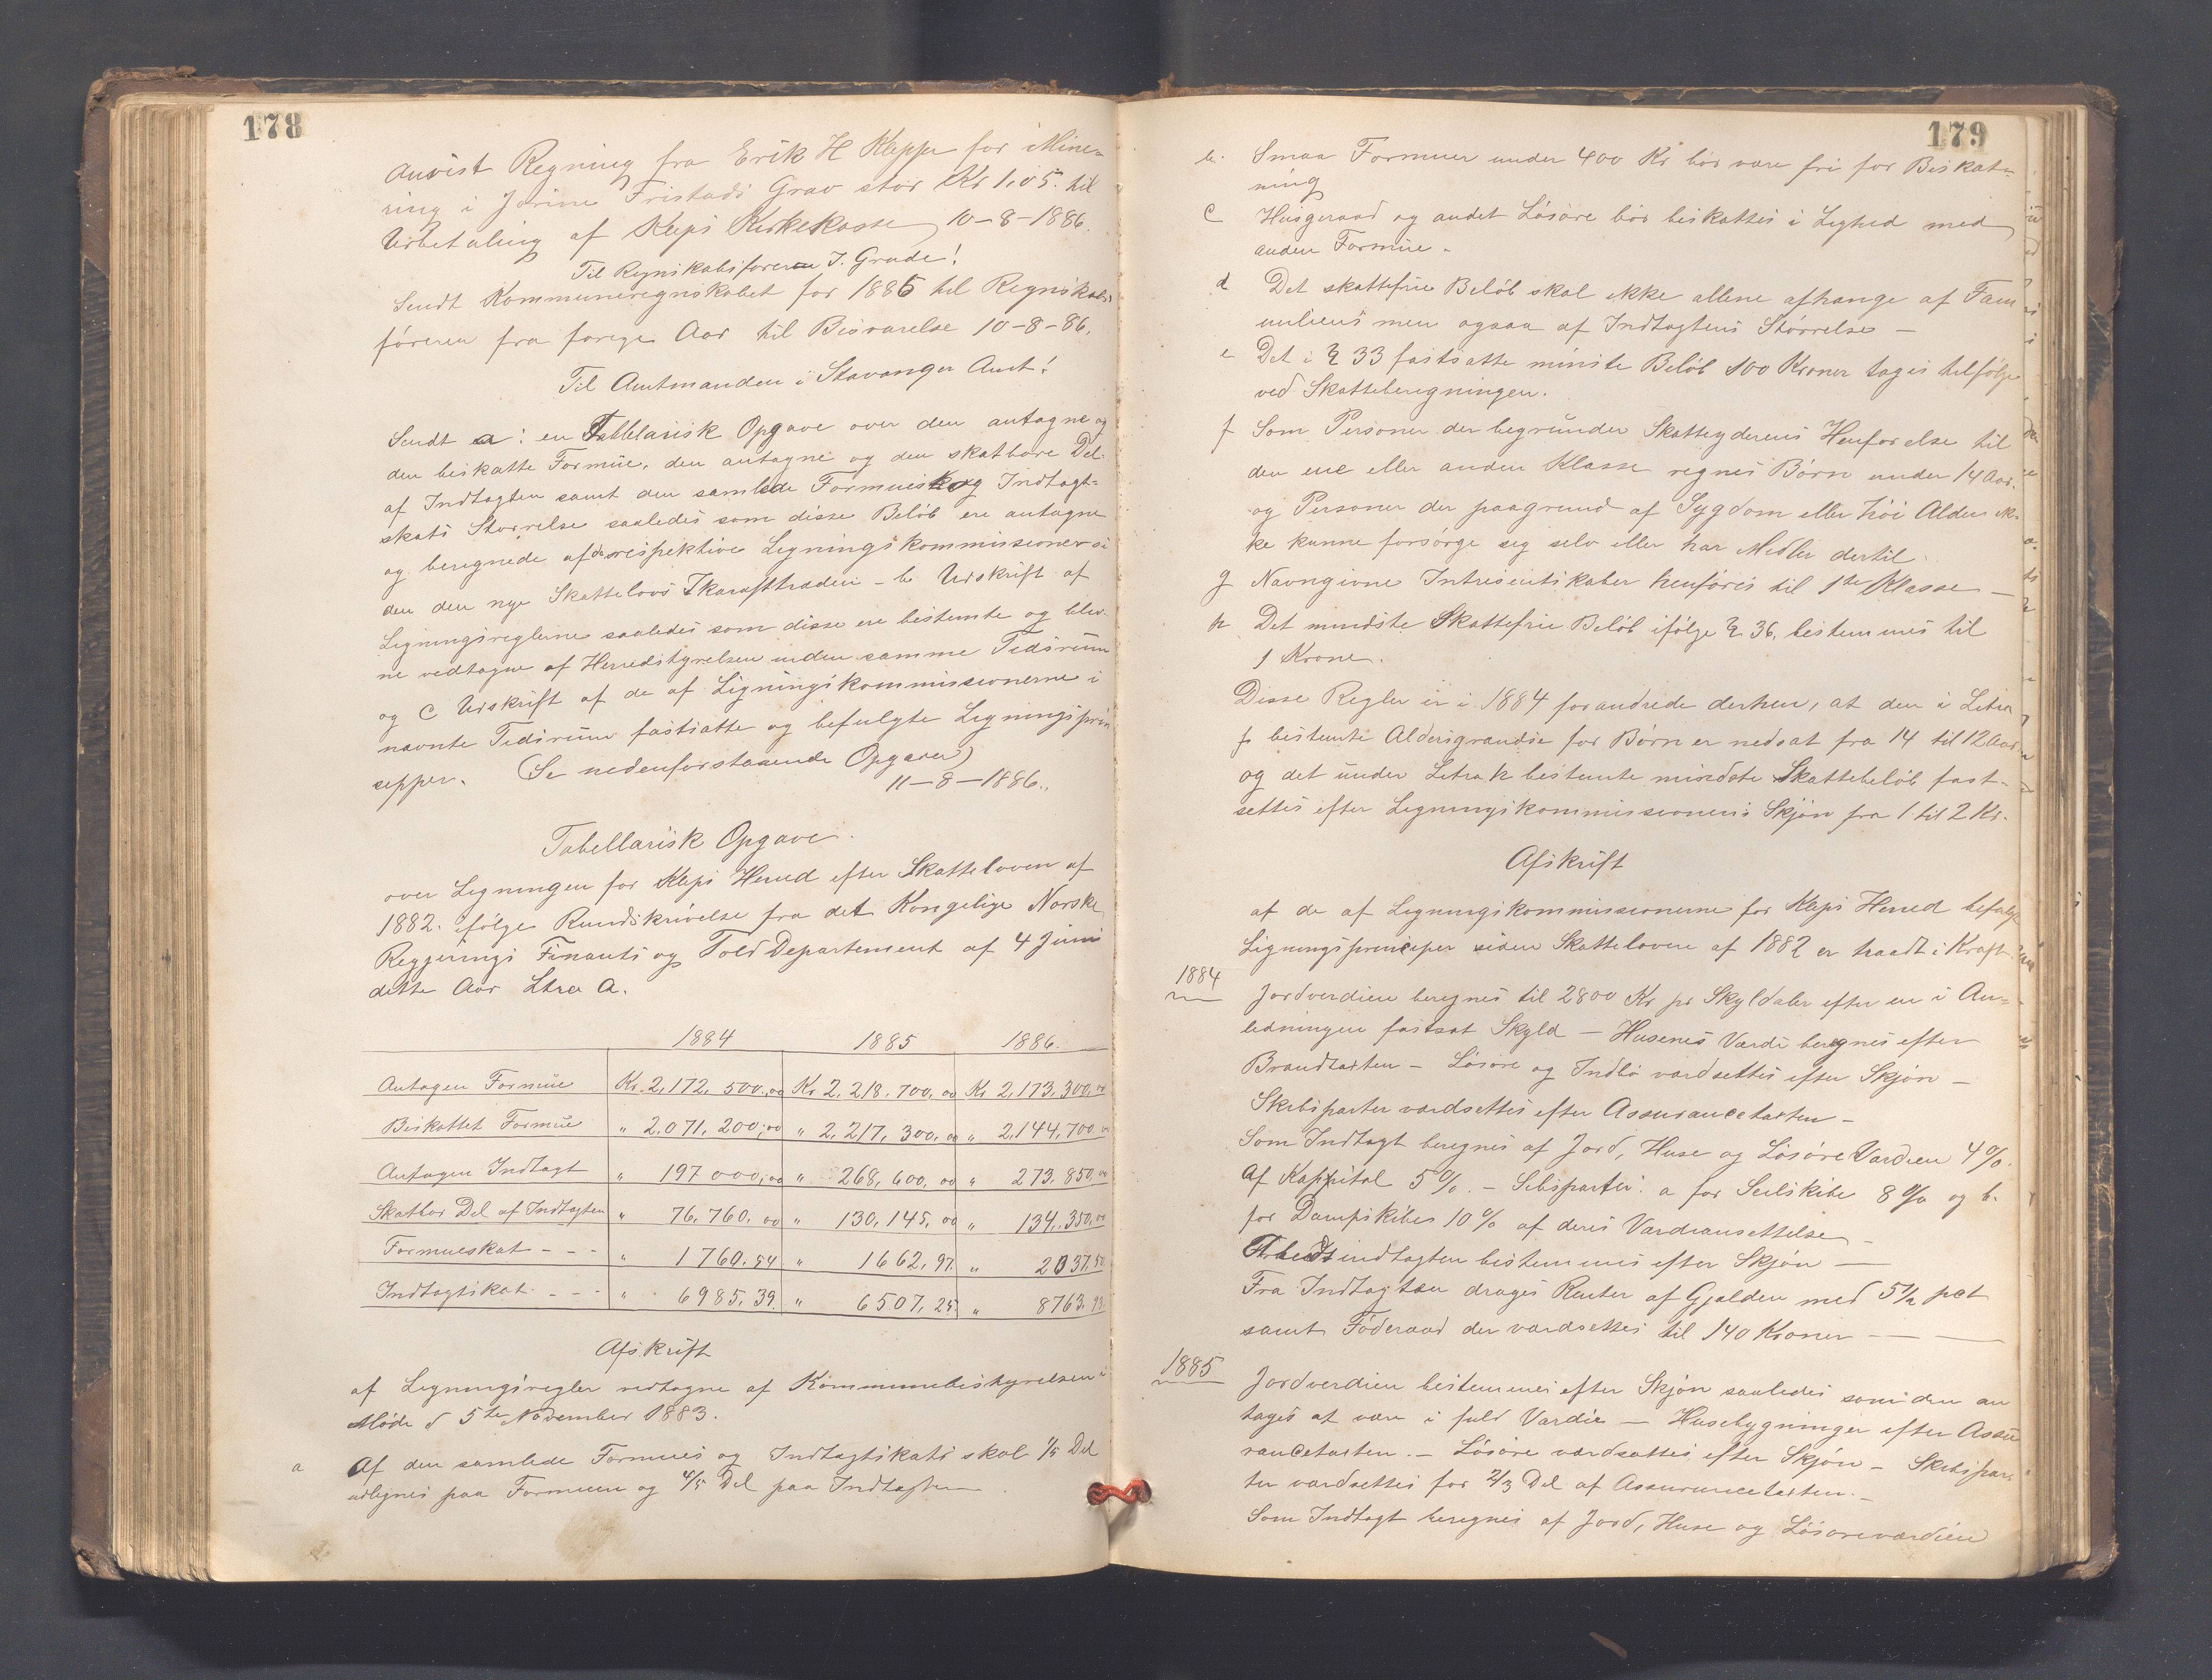 178
Anvist Regning fra Erik H Kleppe for Mine-
ring i Jorine Fristads Grav stor Kr 1,05. til
Udbetaling af Kleps Kirkekasse 10-8-1886.
Til Regnskabsføreren J. Grude!
Sendt Kommuneregnskabet for 1885 til Regnskabs
føreren fra forrige Aar til Besvarelse 10-8-86.
Til Amtmanden i Stavanger Amt!
Sendt a: en Tabellarisk Opgave over den antagne og
den beskatte Formue, den antagne og den skatbare Del
af Indtægten samt den samlede Formuesk og Indtægt-
skats Størrelse saaledes som disse Beløb ere antagne
og beregnede af de respektive Ligningskommissioner si
den den nye Skattelovs Ikrafttræden - b Udskrift af
Ligningsreglerne saaledes som disse ere bestemte og blev
ne vedtagne af Herredstyrelsen inden samme Tidsrum
og C Udskrift af de af Ligningskommissionerne i
nævnte Tidsrum fastsatte og befulgte Ligningsprin
sepper. (Se nedenforstaaende Opgaver)
11-8-1886.
Tabellarisk Opgave
over Ligningen for Kleps Herred efter Skatteloven af
1882. ifølge Rundskrivelse fra det Kongelige Norske
Regjerings Finants og Told Departement af 4 Juni
dette Aar Ltra A.
1884 1885 1886.
Antagen Formue Kr. 2,172,500,00 Kr 2,218,700,00 Kr 2,173,300,00
Beskattet Formue " 2,071,200,00 " 2,217,300,00 " 2,144,700,00
Antagen Indtægt " 197 000,00 " 268,600,00 " 273,850,00
Skatbar Del af Indtægten " 76,760,00 " 130,145,00 " 134,350,00
Formueskat - - - " 1760.54 " 1662,97 " 2037.50
Indtægtskat - - - " 6985,39 " 6507,25 " 8763.93
Afskrift
af Ligningsregler vedtagne af Kommunebestyrelsen i
Møde d 5te November 1883.
a Af den samlede Formues og Indtægtskats skal 1/5 Del
udlignes paa Formuen og 4/5 Del paa Indtægten
179
b. Smaa Formuer under 400 Kr bør være fri for Beskat-
ning
C Husgeraad og andet Løsøre bør beskattes i Lighed med
anden Formue.
d Det skattefrie Beløb skal ikke allene afhænge af Fam
miliens men ogsaa af Indtægtens Størrelse -
e Det i § 33 fastsatte minste Beløb 100 Kroner tages tilfølge
ved Skatteberegningen.
f Som Personer der begrunder Skatteyderens Henførelse til
den ene eller anden Klasse regnes Børn under 14 Aar
og Personer der paagrund af Sygdom eller høi Alder ik-
ke kunne forsørge sig selv eller har Midler dertil.
g Navngivne Intresentskaber henføres til 1ste Klasse -
h Det mindste Skattefrie Beløb ifølge § 36, bestemmes til
1 Krone.
Disse Regler er i 1884 forandrede derhen, at den i Litra
f bestemte Aldersgrændse for Børn er nedsat fra 14 til 12 Aar
og det under Litra h bestemte mindste Skattebeløb fast-
settes efter Ligningskommissionens Skjøn fra 1 til 2 Kr.
Afskrift
af de af Ligningskommissionerne for Kleps Herred befulgte
Ligningsprinciper siden Skatteloven af 1882 er traadt i Kraft
1884
Jordverdien beregnes til 2800 Kr pr Skyldaler efter en i An-
ledningen fastsat Skyld - Husenes Værdi beregnes efter
Brandtaxten - Løsøre og Indbo værdsettes efter Skjøn -
Skibsparter værdsettes efter Assurancetaxten -
Som Indtægt beregnes af Jord, Huse og Løsøre Værdien 4%.
Af Kappital 5%. - Sibsparter: a for Seilskibe 8% og b.
for Dampskibes 10% af deres Værdiansettelse -
Arbeidsindtægten bestemmes efter Skjøn -
Fra Indtægten drages Renter af Gjælden med 5 1/2 pct
samt Føderaad der værdsettes til 140 Kroner -
1885
Jordverdien bestemmes efter Skjøn saaledes som den an
tages at være i fuld Værdie - Husebygninger efter Assu
rancetaxten. - Løsøre værdsattes efter Skjøn - Skibspar
ter værdsettes for 2/3 Del af Assurancetaxten. -
Som Indtægt beregnes af Jord, Huse og Løsøreværdien